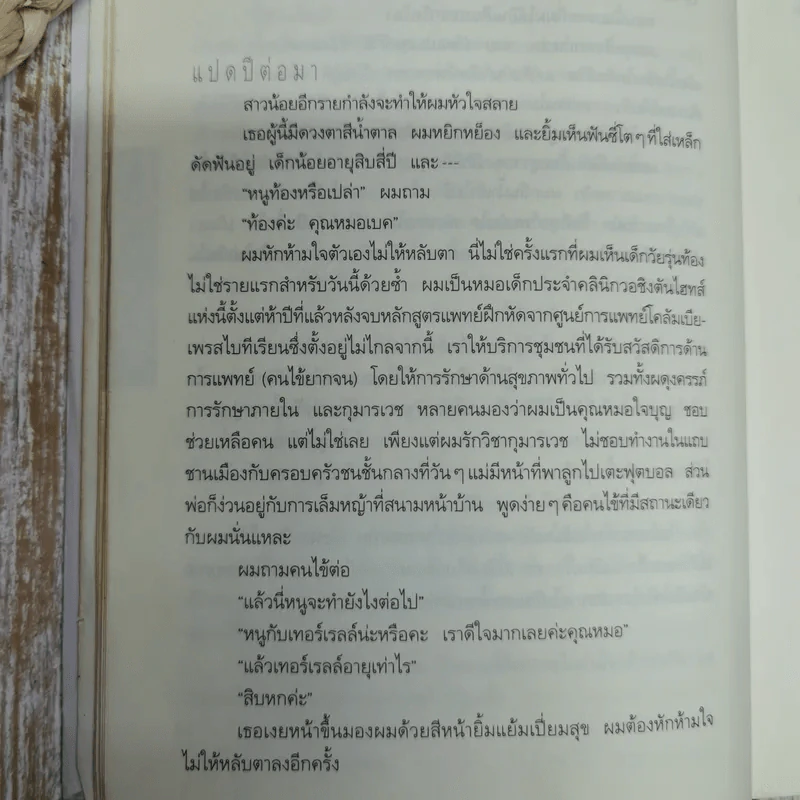 แปดปีต่อมา
สาวน้อยอีกรายกำลังจะทำให้ผมหัวใจสลาย
เธอผู้นี้มีดวงตาสีน้ำตาล ผมหยิกหย็อง และยิ้มเห็นฟันซี่โตๆ ที่ใส่เหล็ก
ดัดฟันอยู่ เด็กน้อยอายุสิบสี่ปี และ ---
“หนูท้องหรือเปล่า” ผมถาม
“ท้องค่ะ คุณหมอเบค”
ผมหักห้ามใจตัวเองไม่ให้หลับตา นี่ไม่ใช่ครั้งแรกที่ผมเห็นเด็กวัยรุ่นท้อง
ไม่ใช่รายแรกสำหรับวันนี้ด้วยซ้ำ ผมเป็นหมอเด็กประจำคลินิกวอชิงตันไฮทส์
แห่งนี้ตั้งแต่ห้าปีที่แล้วหลังจบหลักสูตรแพทย์ฝึกหัดจากศูนย์การแพทย์โคลัมเบีย-
เพรสไบทีเรียนซึ่งตั้งอยู่ไม่ไกลจากนี้ เราให้บริการชุมชนที่ได้รับสวัสดิการด้าน
การแพทย์ (คนไข้ยากจน) โดยให้การรักษาด้านสุขภาพทั่วไป รวมทั้งผดุงครรภ์
การรักษาภายใน และกุมารเวช หลายคนมองว่าผมเป็นคุณหมอใจบุญ ชอบ
ช่วยเหลือคน แต่ไม่ใช่เลย เพียงแต่ผมรักวิชากุมารเวช ไม่ชอบทำงานในแถบ
ชานเมืองกับครอบครัวชนชั้นกลางที่วันๆ แม่มีหน้าที่พาลูกไปเตะฟุตบอล ส่วน
พ่อก็ง่วนอยู่กับการเล็มหญ้าที่สนามหน้าบ้าน พูดง่ายๆ คือคนไข้ที่มีสถานะเดียว
กับผมนั่นแหละ
ผมถามคนไข้ต่อ
“แล้วนี่หนูจะทำยังไงต่อไป”
“หนูกับเทอร์เรลล์น่ะหรือคะ เราดีใจมากเลยค่ะคุณหมอ”
“แล้วเทอร์เรลล์อายุเท่าไร”
“สิบหกค่ะ”
เธอเงยหน้าขึ้นมองผมด้วยสีหน้ายิ้มแย้มเปี่ยมสุข ผมต้องหักห้ามใจ
ไม่ให้หลับตาลงอีกครั้ง